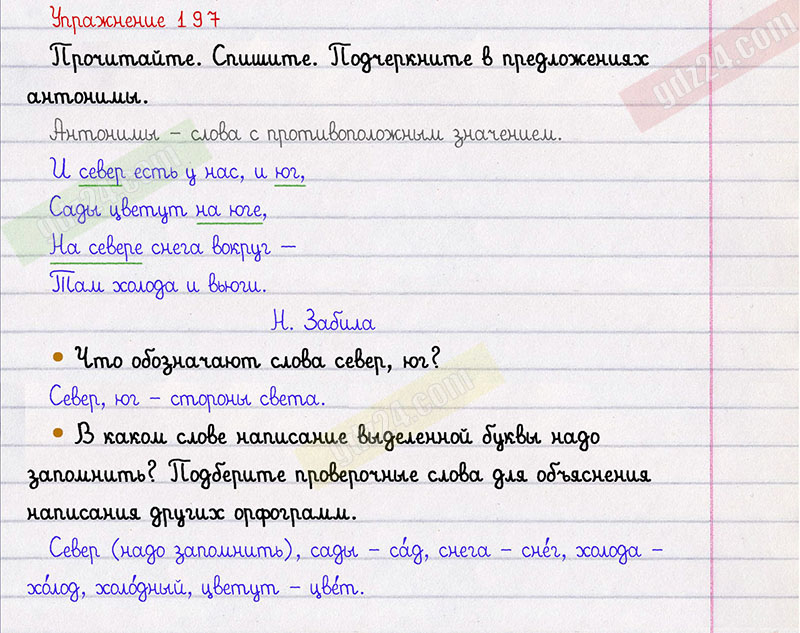 Упражнение 197
Прочитайте. Спишите. Подчеркните в предложениях
антонимы.
Антонимы – слова с противоположным значением.
И север есть у нас, и юг,
Сады цветут на юге,
На севере снега вокруг –
Там холода и вьюги.
Н. Забила
• Что обозначают слова север, юг?
Север, юг – стороны света.
• В каком слове написание выделенной буквы надо
запомнить? Подберите проверочные слова для объяснения
написания других орфограмм.
Север (надо запомнить), сады – са́д, снега – сне́г, холода –
хо́лод, холо́дный, цветут – цве́т.
gdz24.com
gdz24.com
gdz24.com